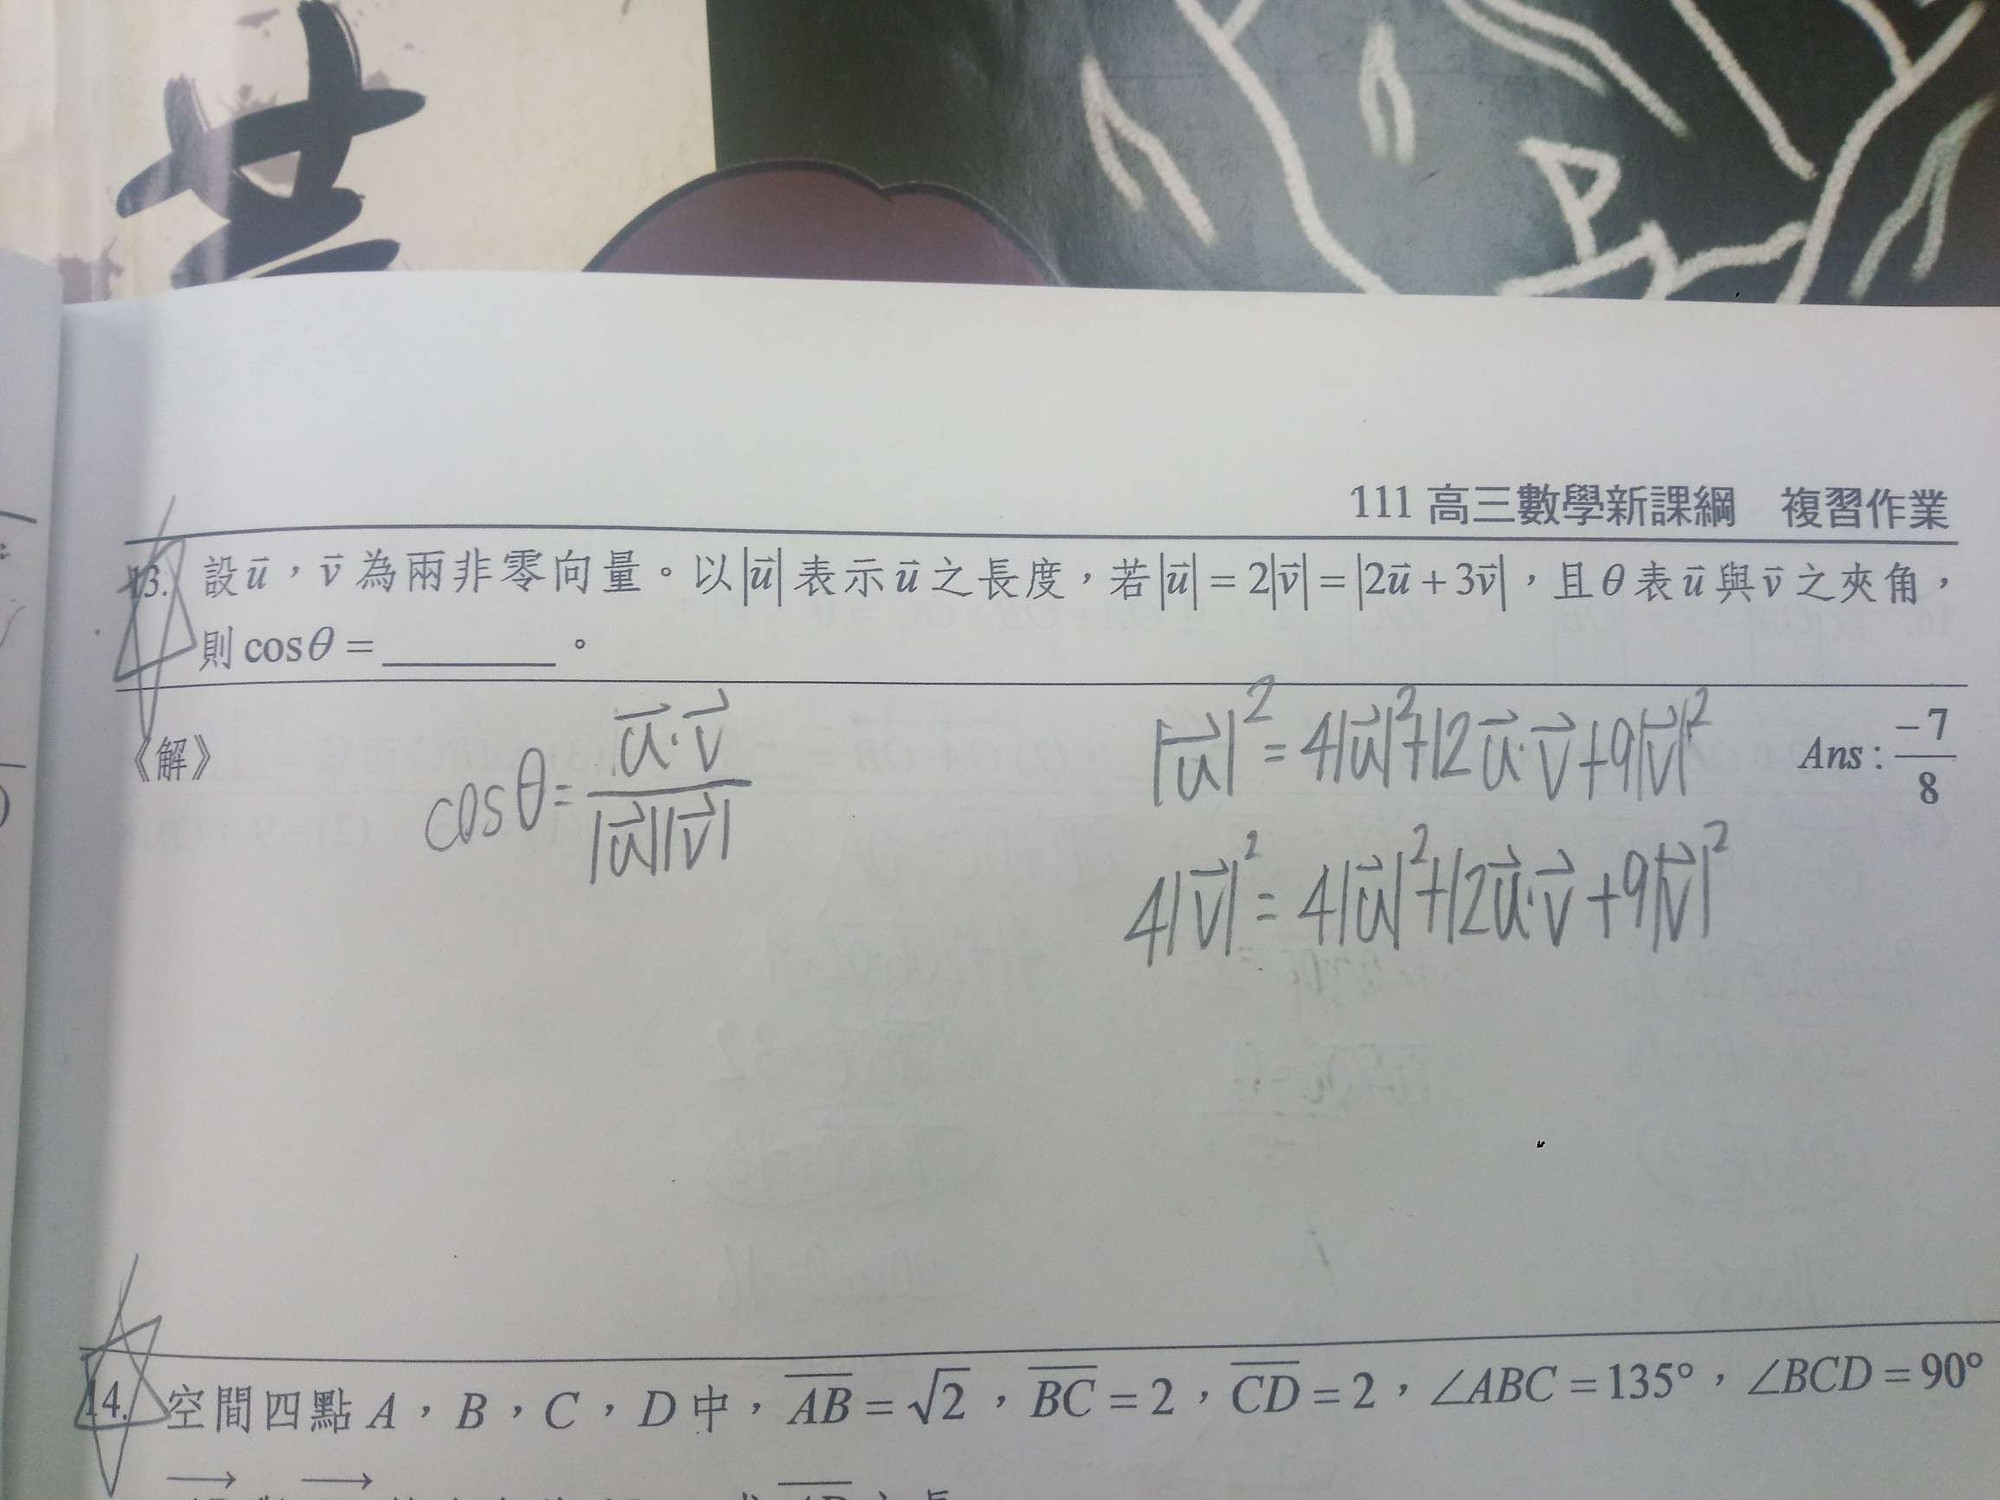 111 高三數學新課綱 複習作業
13. 設 u⃗，v⃗ 為兩非零向量。以 |u⃗| 表示 u⃗ 之長度，若 |u⃗| = 2|v⃗| = |2u⃗ + 3v⃗|，且 θ 表 u⃗ 與 v⃗ 之夾角，
則 cosθ = ________ 。
《解》
cosθ = u⃗·v⃗ / |u⃗||v⃗|
|u⃗|² = 4|u⃗|² + 12u⃗·v⃗ + 9|v⃗|²
4|v⃗|² = 4|u⃗|² + 12u⃗·v⃗ + 9|v⃗|²
Ans : -7/8
14. 空間四點 A，B，C，D 中，A̅B̅ = √2，B̅C̅ = 2，C̅D̅ = 2，∠ABC = 135°，∠BCD = 90°